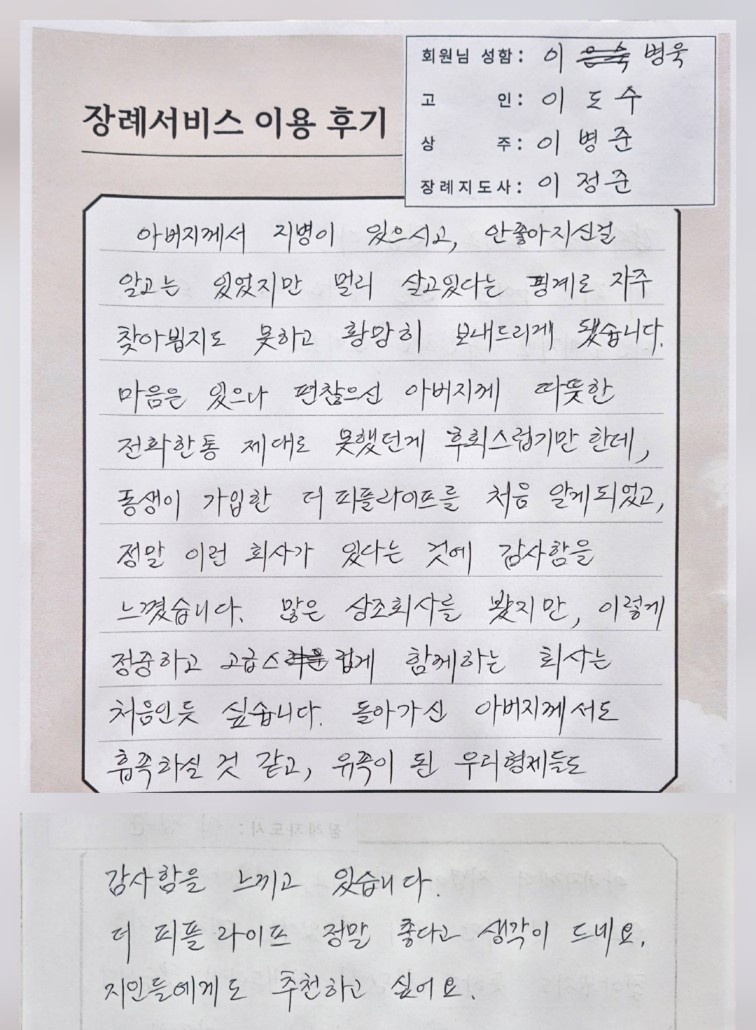 장례서비스 이용 후기
회원님 성함: 이 병욱
고 인: 이 도 수
상 주: 이 병 준
장례지도사: 이 정 준
아버지께서 지병이 있으시고, 안좋아지신걸
알고는 있었지만 멀리 살고있다는 핑계로 자주
찾아뵙지도 못하고 황망히 보내드리게 됐습니다.
마음은 있으나 편찮으신 아버지께 따뜻한
전화한통 제대로 못했던게 후회스럽기만 한데,
동생이 가입한 더 피플라이프를 처음 알게되었고,
정말 이런 회사가 있다는 것에 감사함을
느꼈습니다. 많은 상조회사를 봤지만, 이렇게
정중하고 고급스 럽게 함께하는 회사는
처음인듯 싶습니다. 돌아가신 아버지께서도
흡족하실 것 같고, 유족이 된 우리형제들도
감사함을 느끼고 있습니다.
더 피플 라이프 정말 좋다고 생각이 드네요.
지인들에게도 추천하고 싶어요.